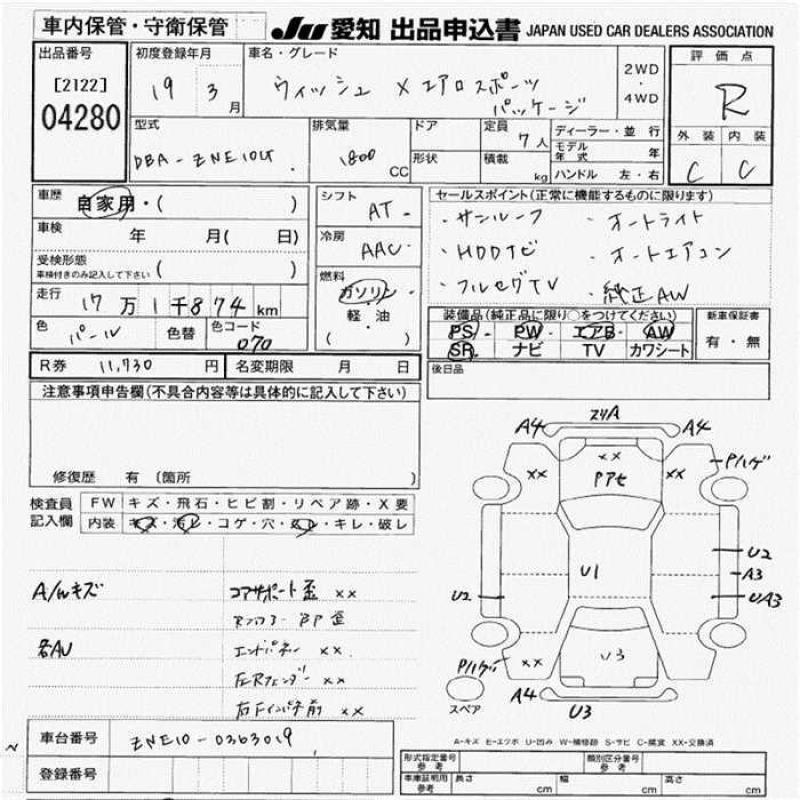 車内保管・守衛保管
JU 愛知 出品申込書 JAPAN USED CAR DEALERS ASSOCIATION
出品番号
[2122]
04280
初度登録年月
19 3 月
車名・グレード
ウィッシュ X エアロスポーツ
パッケージ
2WD
・
4WD
評価点
R
外装 内装
C C
型式
DBA-ZNE10G
排気量
1800 CC
ドア
形状
定員
7 人
積載
kg
ディーラー・並行
モデル年式 年
ハンドル 左・右
車歴
自家用・( )
車検
年 月( 日)
受検形態
車検付きのみ記入して下さい ( )
走行
17万1千874km
色
パール
色替
色コード
070
シフト
AT
冷房
AAC
燃料
ガソリン
・
軽・油
( )
セールスポイント(正常に機能するものに限ります)
・サンルーフ ・オートライト
・HDDナビ ・オートエアコン
・フルセグTV ・純正AW
装備品(純正品に限り○をつけてください)
PS PW エアB AW
SR ナビ TV カワシート
新車保証書
有・無
R券 11,730 円
名変期限 月 日
後日品
注意事項申告欄(不具合内容等は具体的に記入して下さい)
修復歴 有 〔箇所 〕
検査員
記入欄
FW キズ・飛石・ヒビ割・リペア跡・X要
内装 キズ・汚レ・コゲ・穴・スレ・キレ・破レ
A/Wキズ
各AU
コアサポート歪 XX
エンドパネル XX
左Rフェンダー XX
右Fインパネ前 XX
A4 A4
XX XX XX
Pハゲ
U1
U2 U2
A3
UA3
U3
Pハゲ XX
A4
U3
スペア
A-キズ E-エクボ U-凹み W-補修跡 S-サビ C-腐食 XX-交換済
車台番号 ZNE10-0363019
登録番号
形式指定番号
参考
類別区分番号
参考
車庫証明用
参考
長さ cm 幅 cm 高さ cm